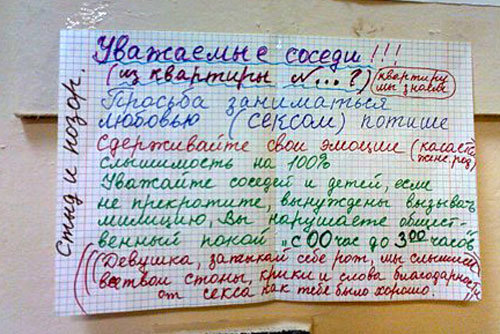 Стыд и позор.
Уважаемые соседи!!!
(из квартиры №...?) (квартиру мы знаем)
Просьба заниматься
любовью (сексом) потише
Сдерживайте свои эмоции (касается женс. ряд)
слышимость на 100%
Уважайте соседей и детей, если
не прекратите, вынуждены вызывать
милицию, Вы нарушаете общест-
венный покой "с 00 час до 300 часов
(Девушка, затыкай себе рот, мы слышим
все твои стоны, крики и слова благодарности
от секса как тебе было хорошо.